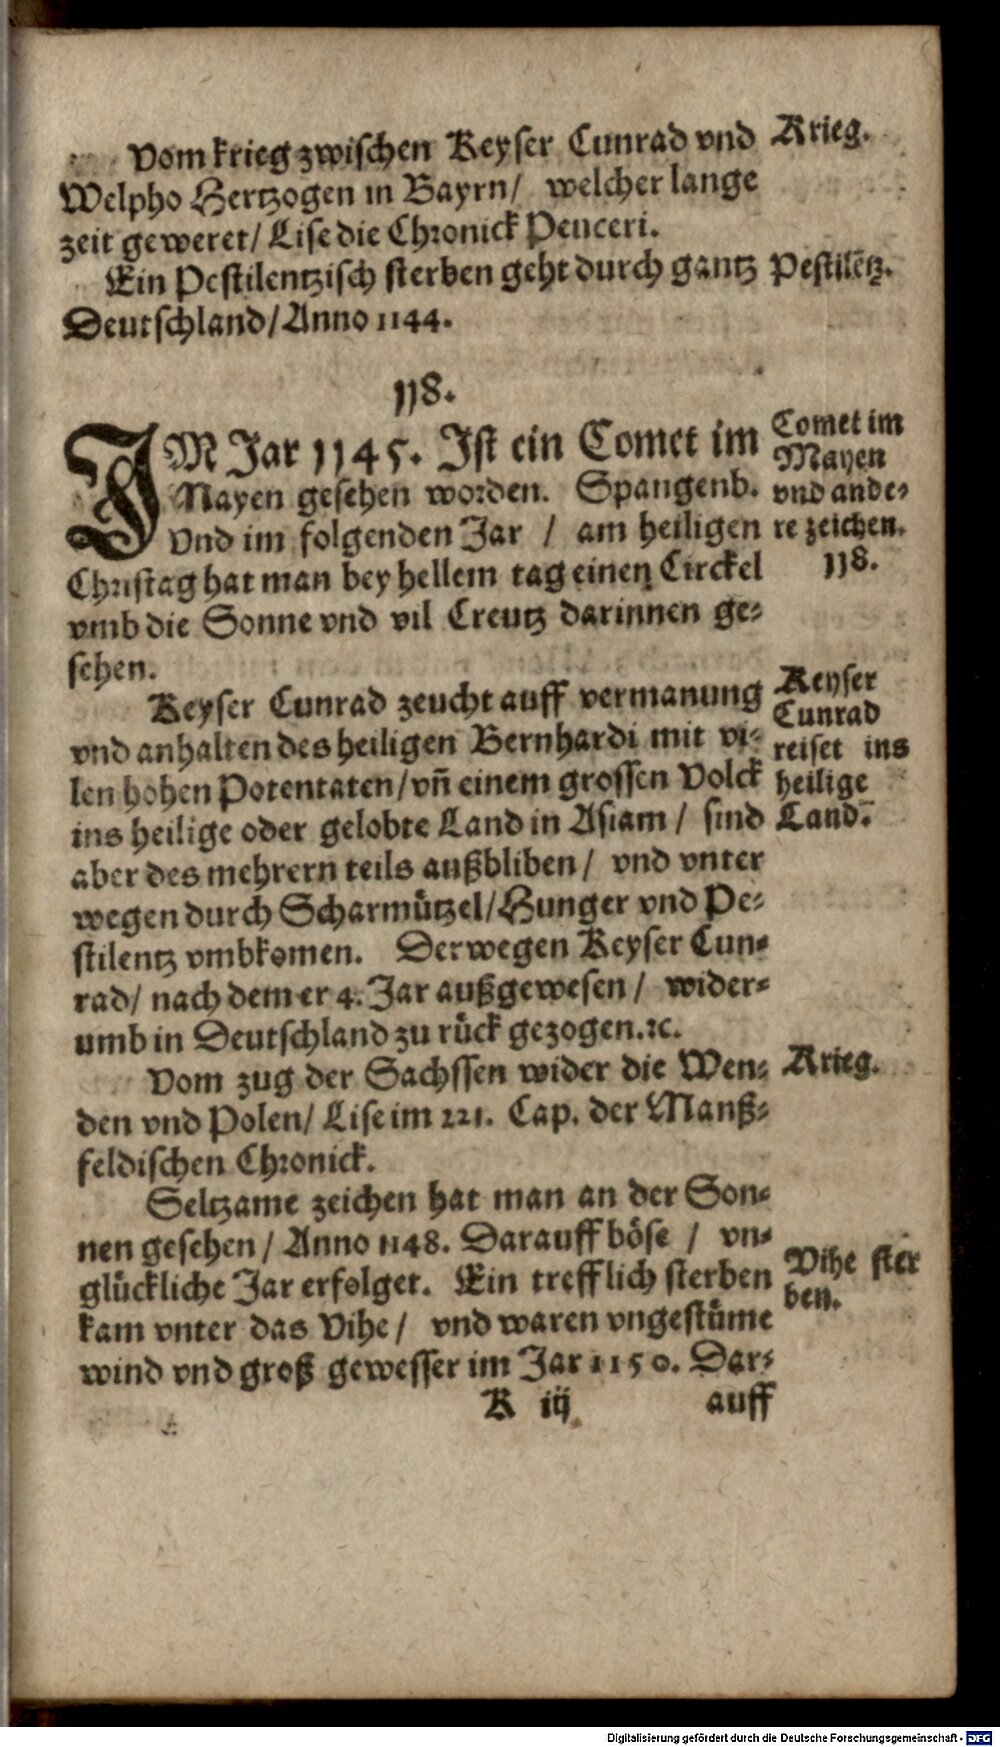 Vom krieg zwischen Keyser Cunrad vnd
Krieg.
Welpho Hertzogen in Bayrn/ welcher lange
zeit geweret/ Lise die Chronick Peuceri.
Ein Pestilentzisch sterben geht durch gantz
Pestilētz.
Deutschland/ Anno 1144.
118.
IM Jar 1145. Ist ein Comet im
Mayen gesehen worden. Spangenb.
Vnd im folgenden Jar / am heiligen
Christag hat man bey hellem tag einen Circkel
vmb die Sonne vnd vil Creutz darinnen ge-
sehen.
Comet im
Mayen
vnd ande-
re zeichen.
118.
Keyser Cunrad zeucht auff vermanung
vnd anhalten des heiligen Bernhardi mit vi-
len hohen Potentaten/ vñ einem grossen Volck
ins heilige oder gelobte Land in Asiam / sind
aber des mehrern teils außbliben / vnd vnter
wegen durch Scharmützel/ Hunger vnd Pe-
stilentz vmbkomen. Derwegen Keyser Cun-
rad/ nach dem er 4. Jar außgewesen / wider-
umb in Deutschland zu rück gezogen. ꝛc.
Keyser
Cunrad
reiset ins
heilige
Land.
Vom zug der Sachssen wider die Wen-
Krieg.
den vnd Polen/ Lise im 221. Cap. der Manß-
feldischen Chronick.
Seltzame zeichen hat man an der Son-
nen gesehen / Anno 1148. Darauff böse / vn-
glückliche Jar erfolget. Ein trefflich sterben
kam vnter das Vihe / vnd waren vngestüme
wind vnd groß gewesser im Jar 1150. Dar-
Vihe ster
ben.
K iij
auff
Digitalisierung gefördert durch die Deutsche Forschungsgemeinschaft - DFG